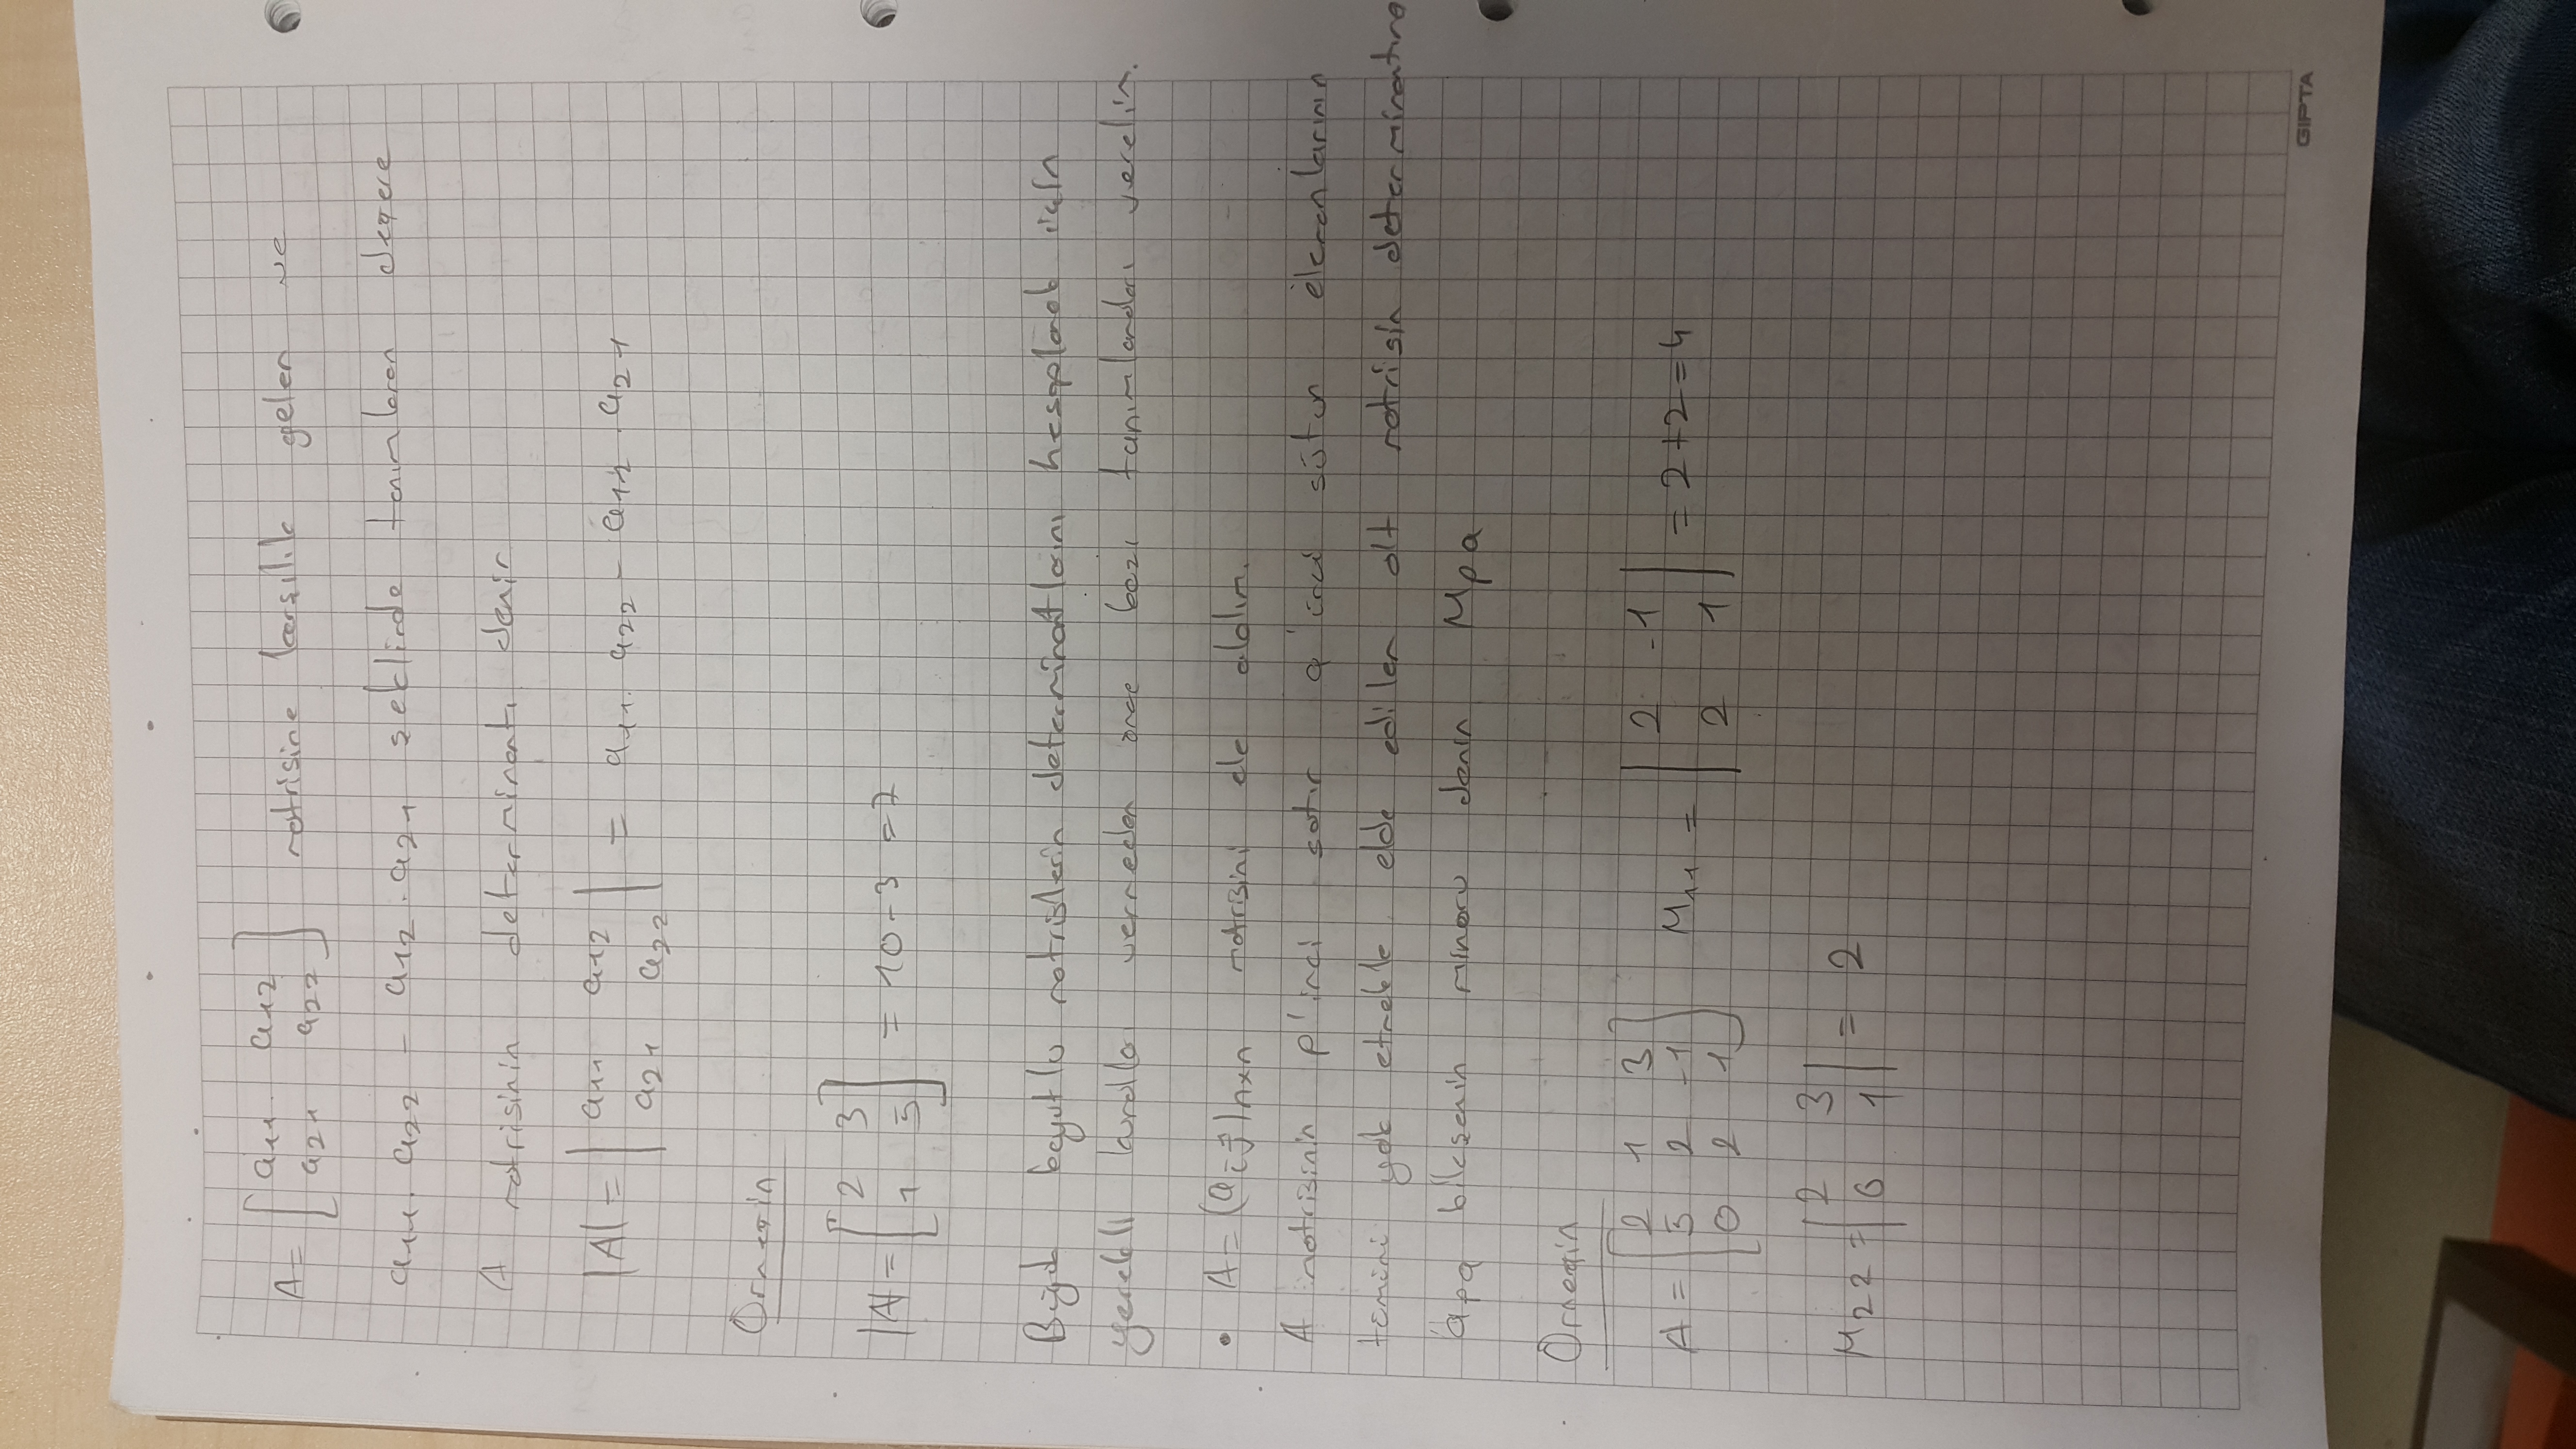 A = [ a11 a12
a21 a22 ] matrisine karşılık gelen ve
a11 . a22 - a12 . a21 şeklinde tanımlanan değere
A matrisinin determinantı denir
|A| = | a11 a12
a21 a22 | = a11 . a22 - a12 . a21
Örneğin
|A| = [ 2 3
1 5 ] = 10 - 3 = 7
Büyük boyutlu matrislerin determinantlarını hesaplamak için
gerekli kuralla vermeden önce bazı tanımlamaları verelim.
• A = (aij)nxn matrisini ele alalım.
A matrisinin p'inci satır q'inci sütun elemanlarının
tümünü yok etmekle elde edilen alt matrisin determinantına
apq bileşenin minörü denir Mpq
Örneğin
A = [ 2 1 3
5 2 -1
0 2 1 ] M11 = | 2 -1
2 1 | = 2 + 2 = 4
M22 = | 2 3
0 1 | = 2
GIPTA